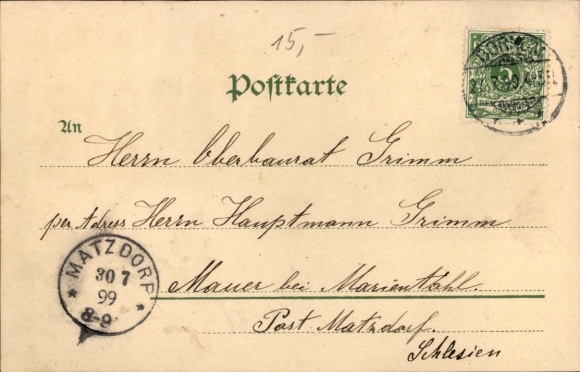 15,-
Postkarte
An
Herrn Oberbaurat Grimm
per Adress Herrn Hauptmann Grimm
MATZDORF
30 7
99
8-9
Mauer bei Marienthal.
Post Matzdorf.
Schlesien